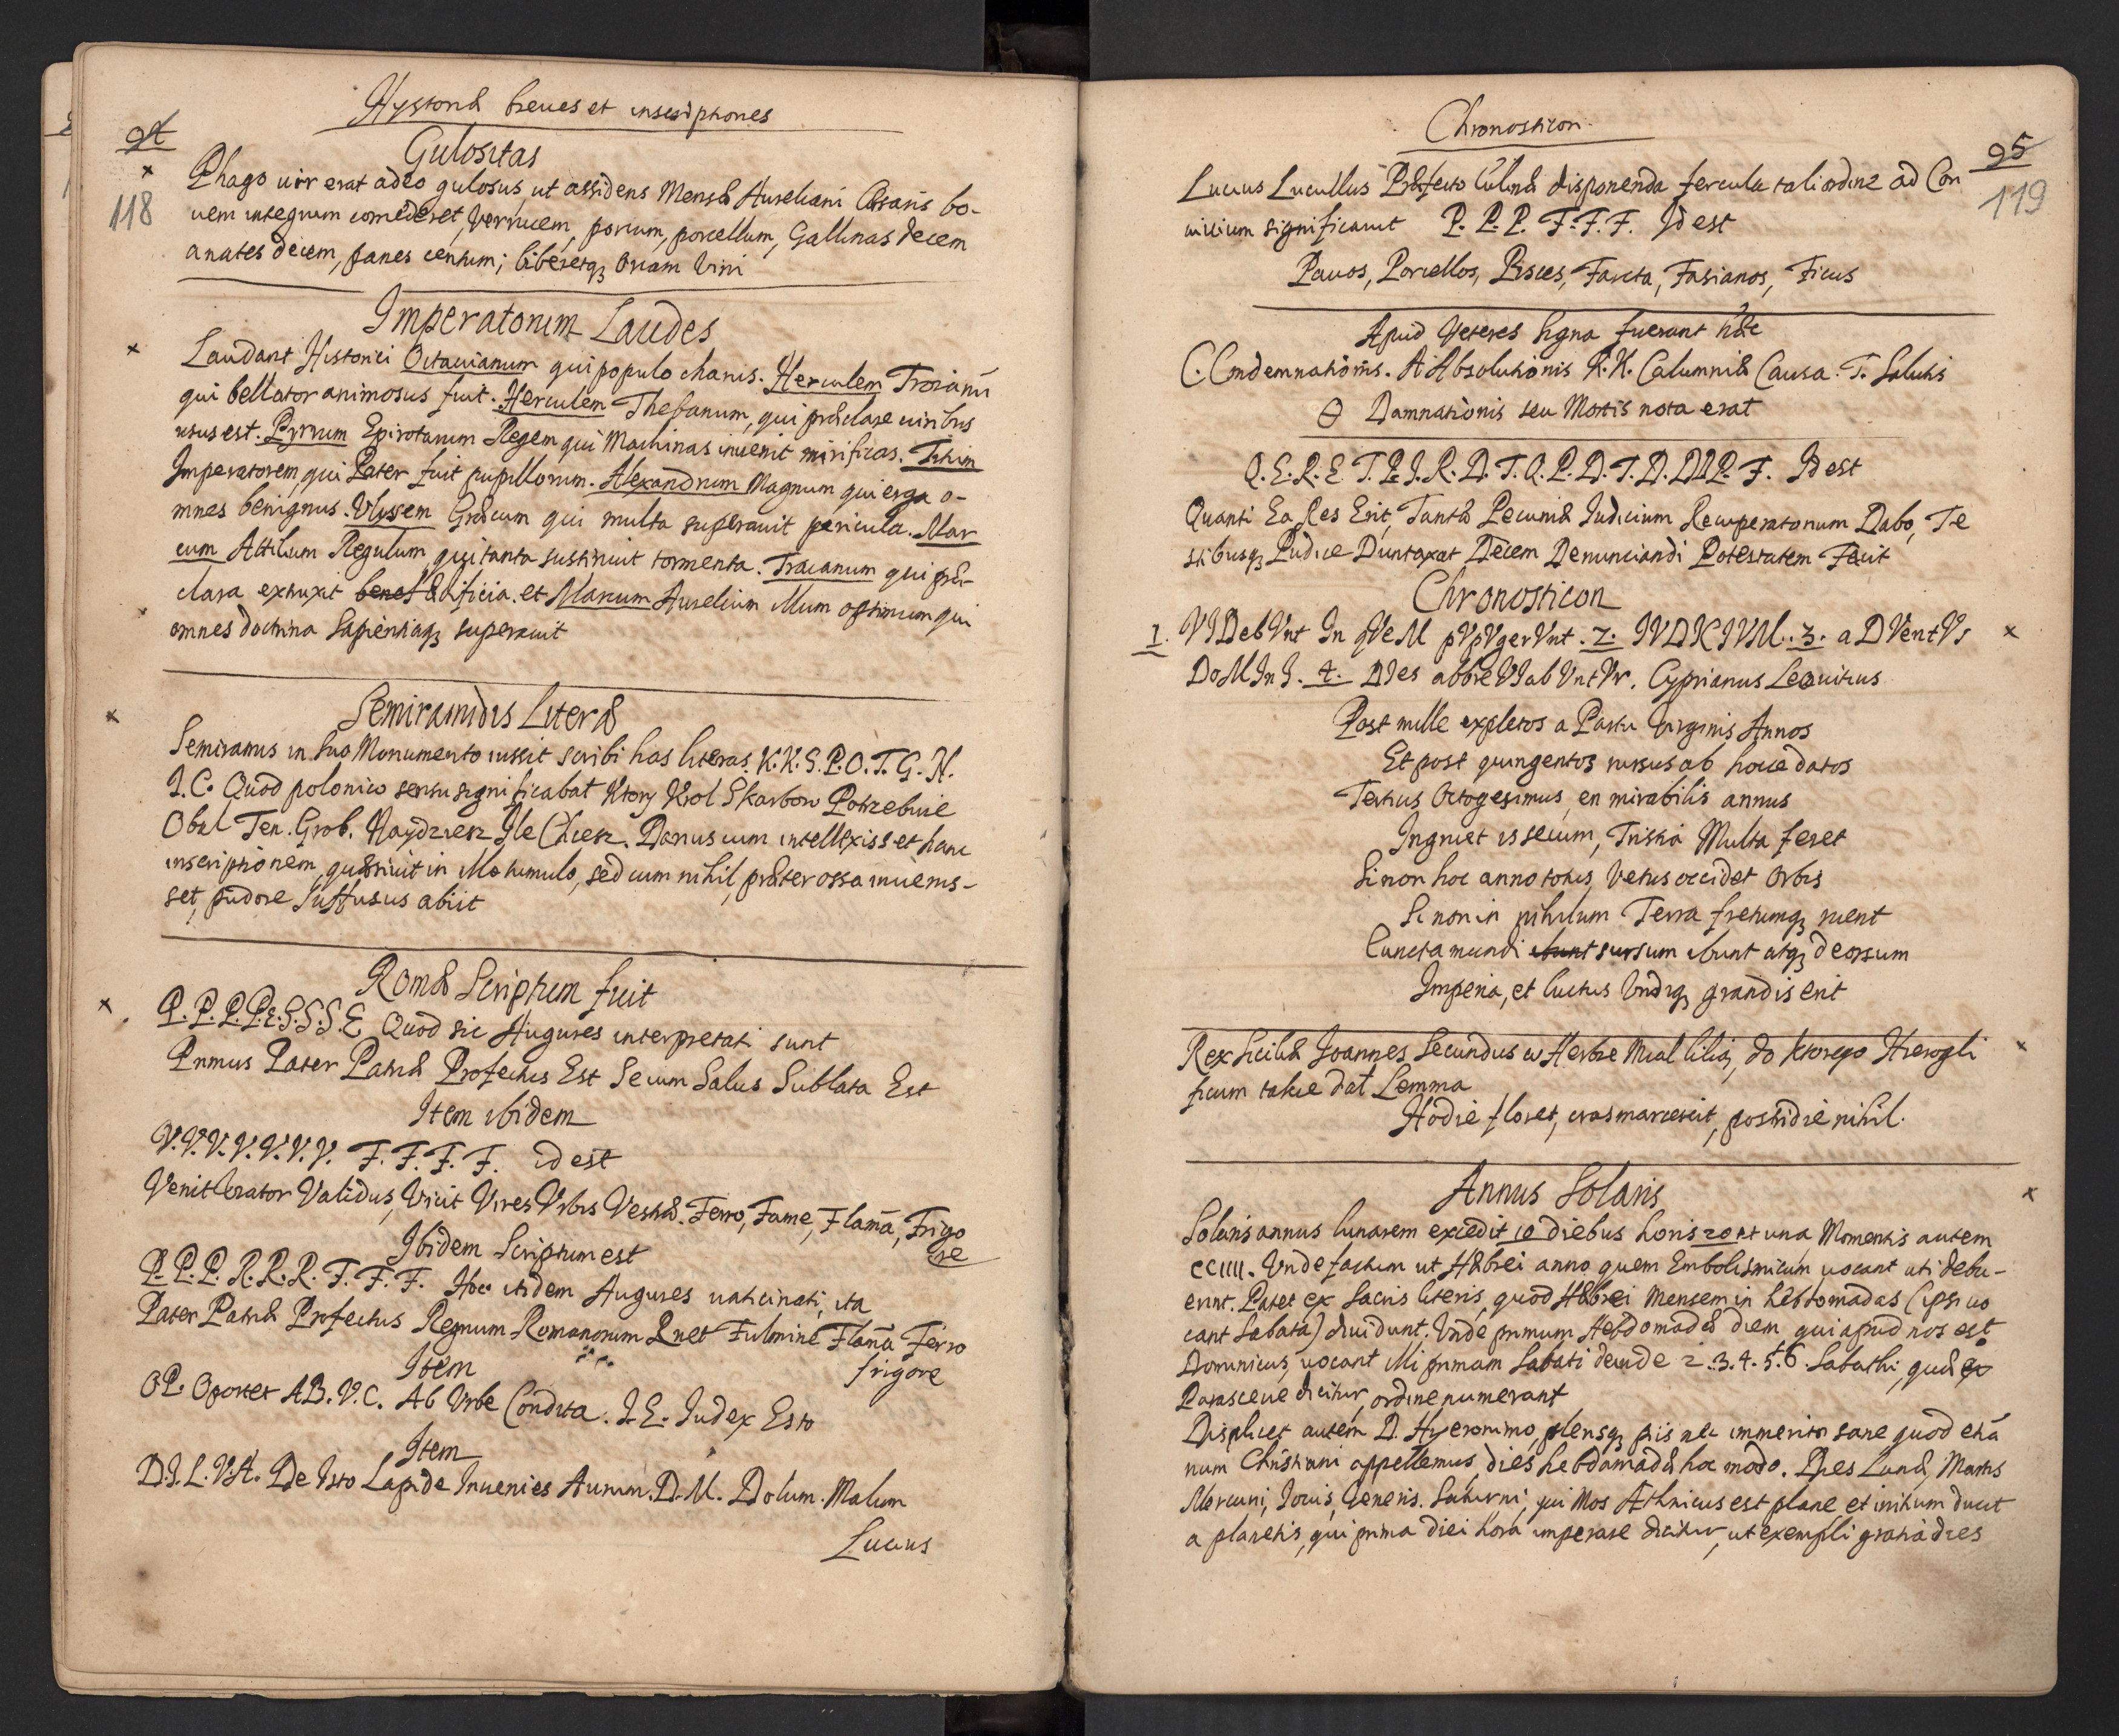 Hystoriæ breues et inscriptiones
94
118
Gulositas
Phago uir erat adeo gulosus, ut assidens Mensæ Aureliani Cæsaris bo-
uem integrum comederet, Verrucem, porcum, porcellum, Gallinas decem
anates decem, panes centum; biberetqꝫ Orcam Vini
Imperatorum Laudes
Laudant Historici Octauianum qui populo charus. Herculem Troianū
qui bellator animosus fuit. Herculem Thebanum, qui præclare uiribus
usus est. Pyrrum Epirotarum Regem qui Machinas inuenit mirificas. Titum
Imperatorem, qui Pater fuit pupillorum. Alexandrum Magnum qui erga o-
mnes benignus. Ulissem Græcum qui multa superauit pericula. Mar
cum Attilium Regulum, qui tanta sustinuit tormenta. Traianum qui præ-
clara extruxit benef ædificia. et Marcum Aurelium illum optimum qui
omnes doctrina Sapientiaqꝫ superauit
Semiramidis Literæ
Semiramis in suo Monumento iussit scribi has literas. K. K. S. P. O. T. G. N.
I. C. Quod polonico sensu significabat Ktory Krol Skarbow Potrzebuie
Obal Ten. Grob. Naydziesz Ile Chcesz. Darius cum intellexisset hanc
inscriptionem, quæsiuit in illo tumulo, sed cum nihil, præter ossa inuenis-
set, pudore suffusus abiit
Romæ Scriptum fuit
P. P. P. P. E. S. S. S. E Quod sic Augures interpretati sunt
Primus Pater Patriæ Profectus Est Secum Salus Sublata Est
Item ibidem
V. V. V. V. V. V. V. F. F. F. F. id est
Venit Uerator Validus, Vicit Vires Vrbis Vestræ. Ferro, Fame, Flamā, Frigo
re
Ibidem Scriptum est
P. P. P. R. R. R. F. F. F. Hoc itidem Augures uaticinati, ita
Pater Patriæ Profectus Regnum Romanorum Ruet Fulmine Flamā Ferro
frigore
Item
OP. Oportet AB. V. C. Ab Vrbe Condita. I. E. Iudex Esto
Item
D. I. L. V. A. De Isto Lapide Inuenies Aurum. D. M. Dolum. Malum
Lucius
Chronosticon
95
119
Lucius Lucullus Præfecto Culinæ disponenda fercula tali ordine ad Con
uiuium significauit P. P. P. F. F. F. Id est
Pauos, Porcellos, Pisces, Farcta, Fasianos, Ficus
Apud Veteres signa fuerant hæc
C. Condemnationis. A Absolutionis K. K. Calumniæ Causa. T. Salutis
Θ Damnationis seu Mortis nota erat
Q. E. R. E T. P. I. R. D. T. Q. P. D. T. D. D. P. F. Id est
Quanti Ea Res Erit, Tantæ Pecuniæ Iudicium Recuperatorium Dabo, Te
stibusqꝫ Pudice Duntaxat Decem Denunciandi Potestatem Fecit
Chronosticon
1. VIDebVnt In qVeM pVpVgerVnt. 2. IVDICIVM. 3. aDVentVs
DoMInI. 4. DIes abbreVIabVntVr. Cyprianus Leouitius
Post mille expletos a Partu Virginis Annos
Et post quingentos rursus ab hocce datos
Tertius Octogesimus, en mirabilis annus
Ingruet is secum, Tristia Multa feret
Si non hoc anno totus, Vetus occidet orbis
Si non in nihilum Terra fretumqꝫ ruent
Cuncta mundi ibunt sursum ibunt atqꝫ deorsum
Imperia, et luctus Vndiqꝫ grandis erit
Rex Siciliæ Ioannes Secundus w Herbie Mial lilią, do ktorego Hierogli
ficum takie dał Lemma
Hodie floret, cras marcescit, postridie nihil.
Annus Solaris
Solaris annus lunarem excedit 10 diebus horis 20 et una, Momentis autem
CCIIII. Vnde factum ut Hæbrei anno quem Embolismicum uocant uti debu-
erint. Patet ex Sacris literis, quod Hæbrei Mensem in hebdomadas (ipsi uo
cant Sabata) diuidunt. Vnde primum Hebdomadæ diem, qui apud nos est
Dominicus, uocant illi primam Sabati deinde 2. 3. 4. 5. 6 Sabathi, quæ et
Parasceue dicitur, ordine numerant
Displicet autem D. Hyeronimo, plerisqꝫ piis nec immerito sane quod etiā
num Christiani appellemus, dies hebdomadæ hoc modo. Dies Lunæ, Martis
Mercurii, Iouis, Veneris. Saturni, qui Mos Ethnicus est plane et initium ducit
a planetis, qui prima diei hora imperare dicitur, ut exempli gratia dies